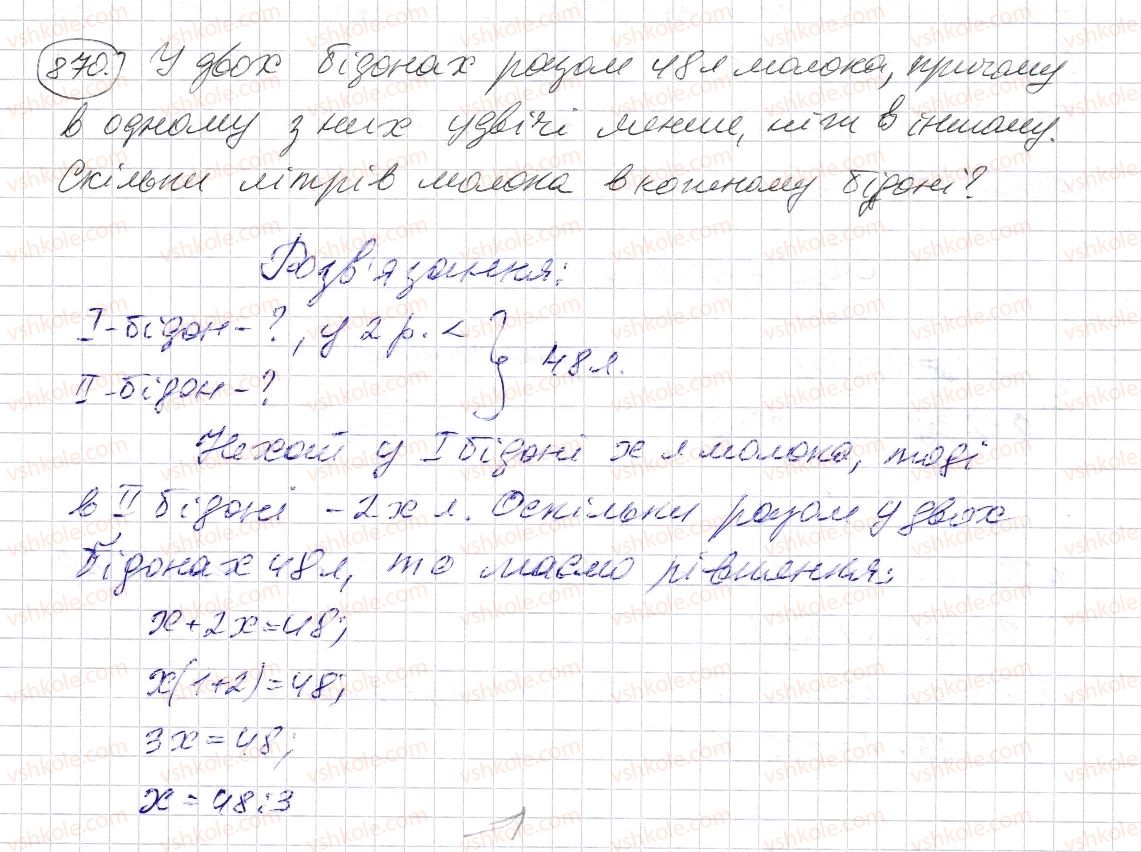 870. У двох бідонах разом 48 л молока, причому
в одному з них удвічі менше, ніж в іншому.
Скільки літрів молока в кожному бідоні?
Розв'язання:
І-бідон-?, у 2 р. <
ІІ-бідон-?
48 л.
Нехай у І бідоні х л молока, тоді
в ІІ бідоні - 2х л. Оскільки разом у двох
бідонах 48 л, то маємо рівняння:
х+2х=48;
х(1+2)=48;
3х=48;
х=48:3